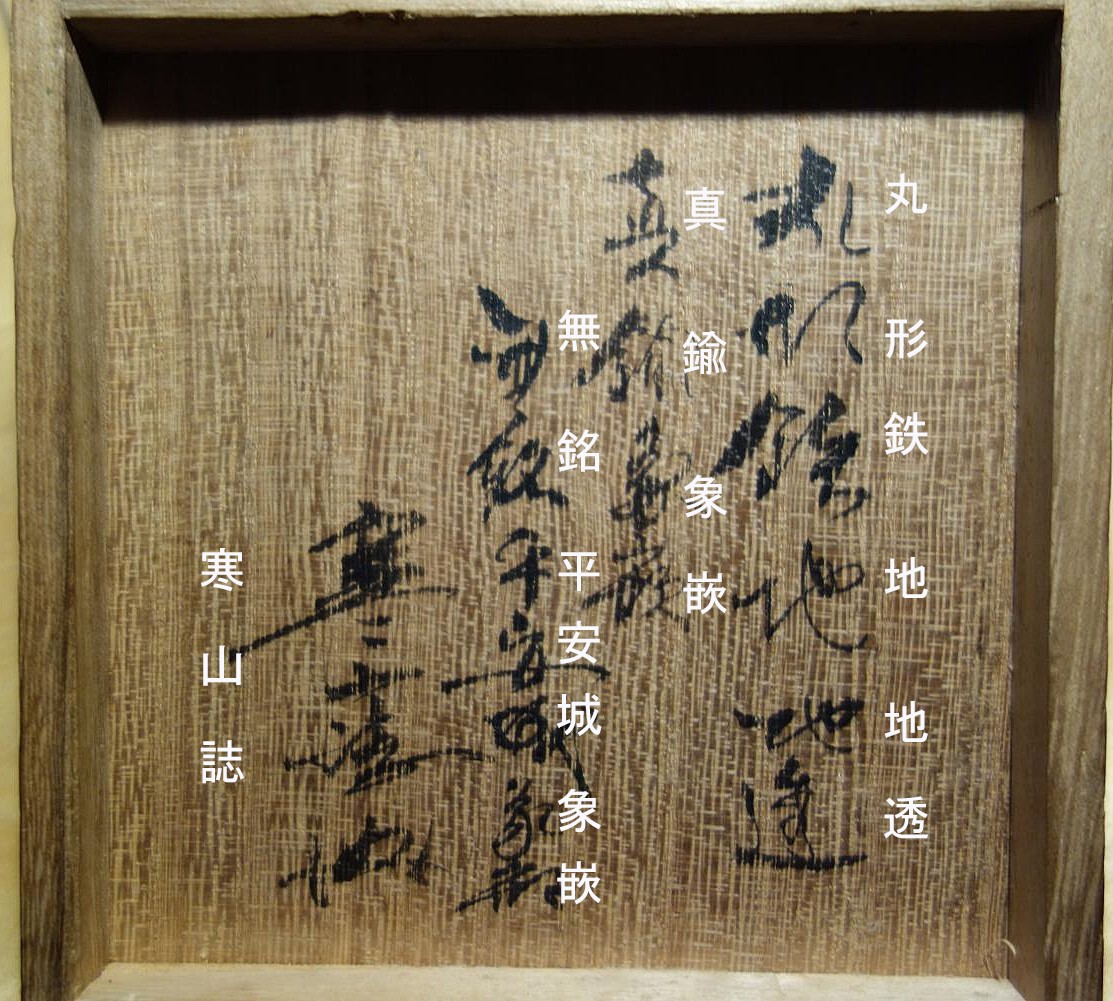 丸形鉄地地透
真鍮象嵌
無銘平安城象嵌
寒山誌